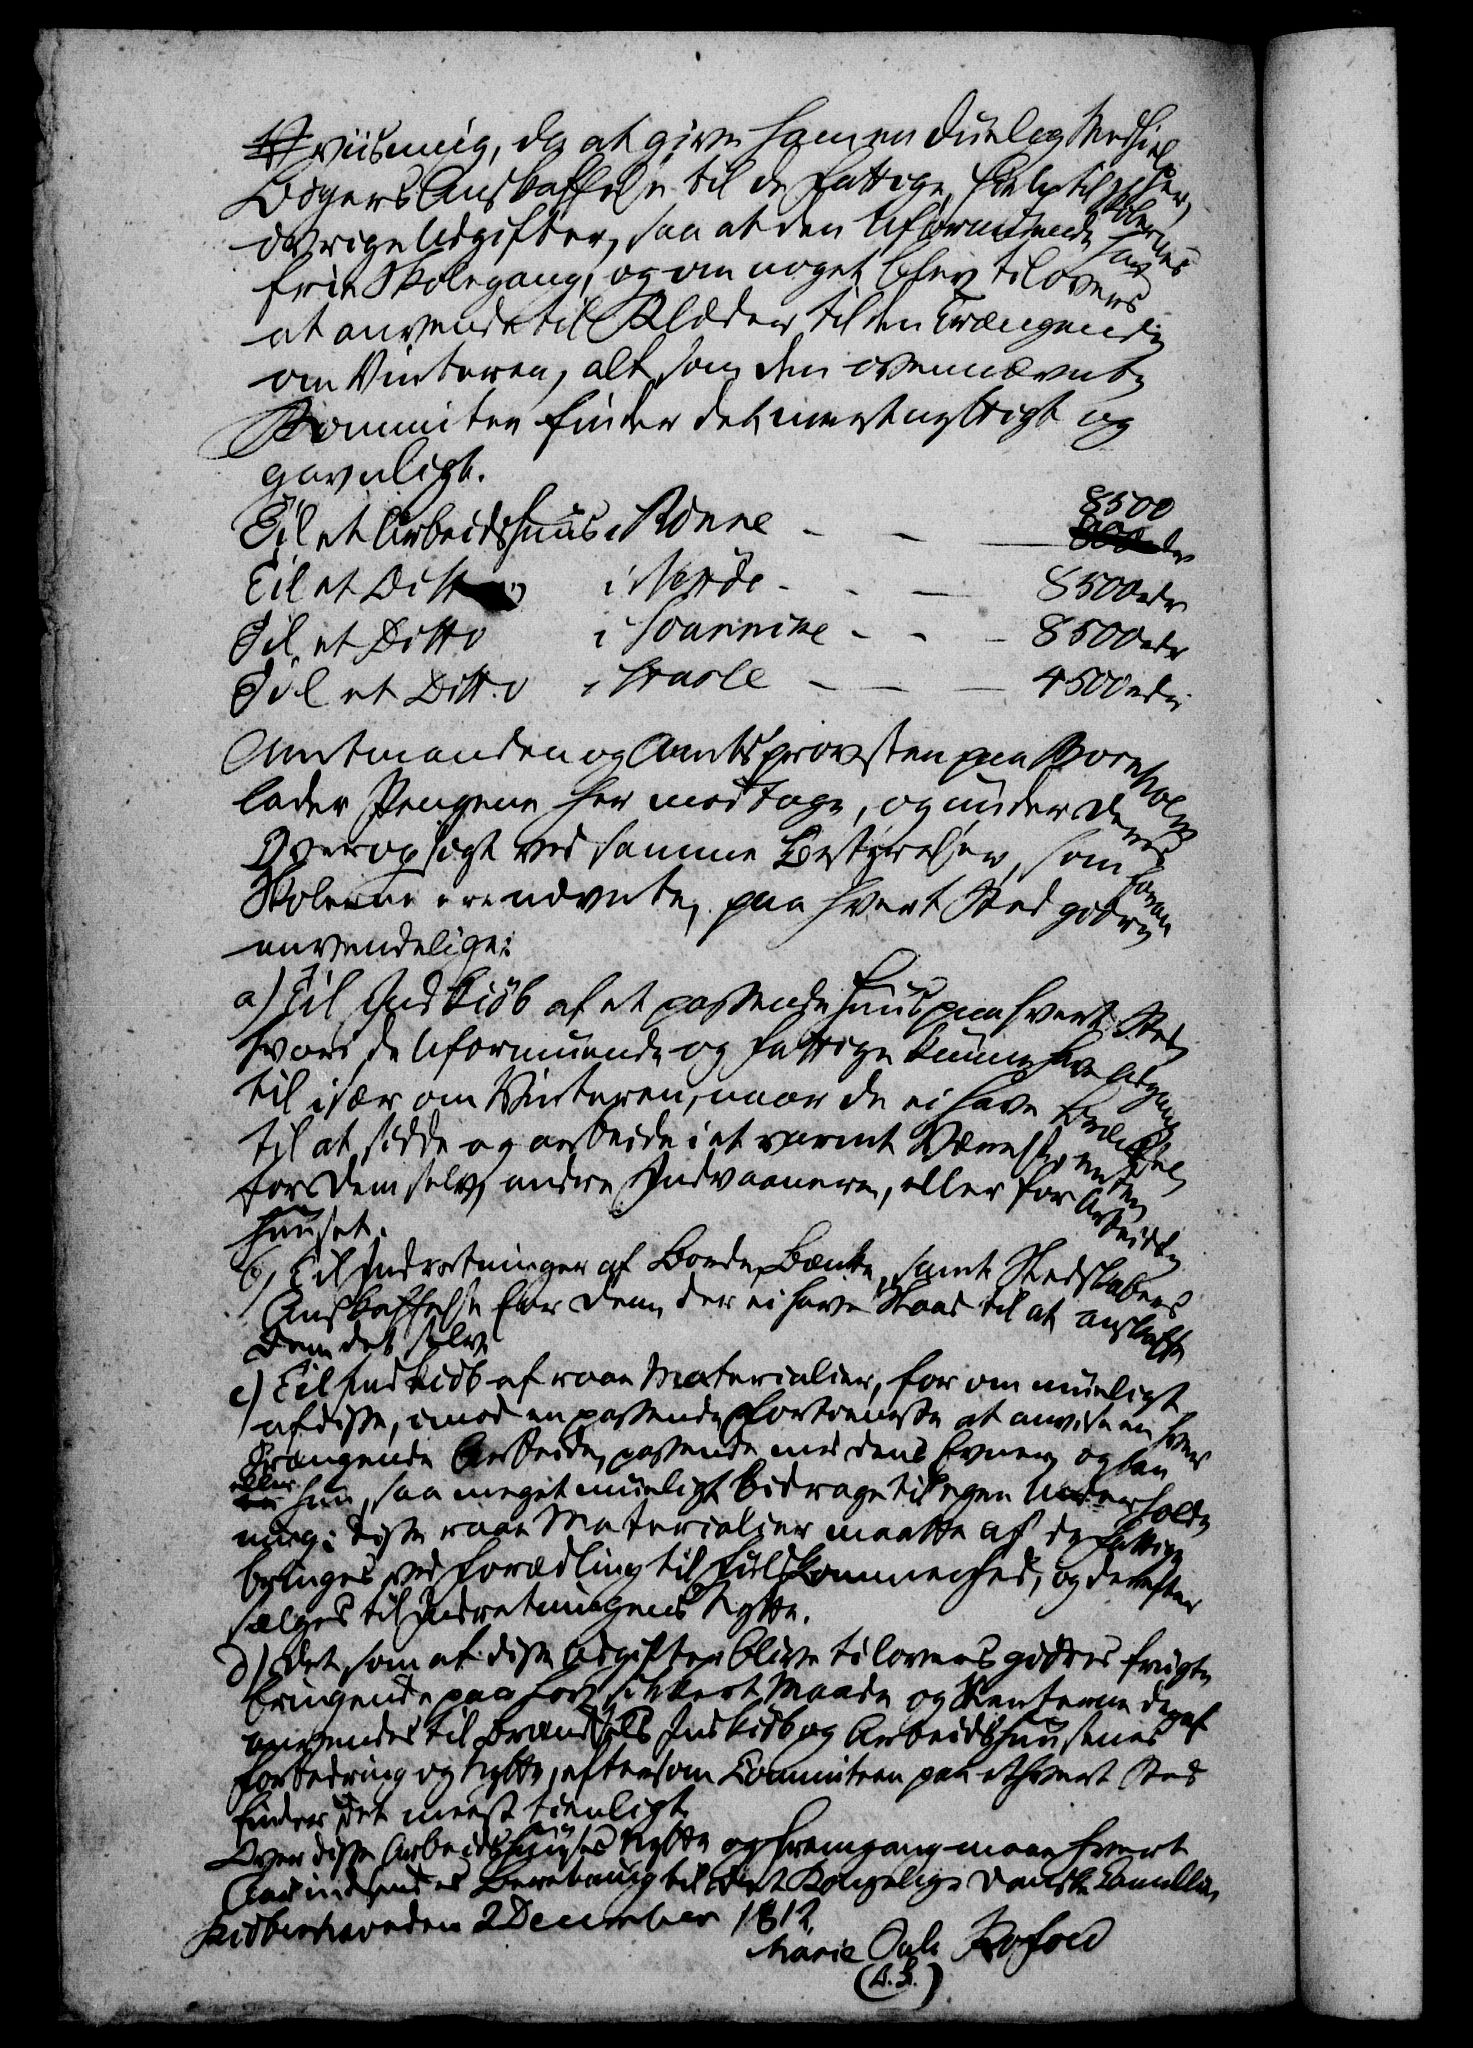 viisning, da at give ham en duelig Medhielper,
Bøgers Anskaffelse til de Fattige, Hielp til Skolernes
øvrige Udgifter, saa at den Uformuende har
frie Skolegang, og om noget blev tilovers
at anvende til Klæder til den Trængende
om Vinteren, alt som den ovennævnte
Kommitee finder det meest nyttigt og
gavnligt.
Til et Arbeidshuus i Rønne - - - 8500
Til et Ditto i Nexøe - - - 8500 rdr
Til et Ditto i Svannike - - - 8500 rdr
Til et Ditto i Hasle - - - 4500 rdr
Amtmanden og Amtsprovsten paa Bornholm
lader Pengene her modtage, og under Deres
Overopsigt ved samme Bestyrelser, som foran
Skolerne ere nævnte, paa hvert Sted giøres
anvendelige:
a) Til Indkiøb af et passende Huus paa hvert Sted
hvori de Uformuende og Fattige kunne have Adgang
til især om Vinteren, naar de ei have Brændsel
til at sidde og arbeide i et varmt Værelse enten
for dem selv, andre Indvaanere, eller for Arbeids
huuset.
b) Til Indretninger af Borde, Bænke, samt Redskabers
Anskaffelse for dem, der ei have Raad til at anskaffe
dem det selv
c) Til Indkiøb af raae Materialier, for om mueligt
af disse, imod en passende Fortieneste at anvise en hver
Trængende Arbeide, passende med dens Evner, og han
eller hun, saa meget mueligt bidrage til egen Underhold
ning: Disse raae Materialier maatte af de Fattige
bringes ved Forædling til Fuldkommenhed, og derefter
sælges til Indretningens Nytte.
d) Det, som af disse Udgifter blive tilovers giøres frugt
bringende paa sikkert Maade og Renterne deraf
anvendes til Brændsels Indkiøb og Arbeidshuusenes
Forbedring og Nytte, eftersom Committeen paa ethvert Sted
finder det meest tienligt
Over disse Arbeidshuuses Nytte og Fremgang maae hvert
Aar indsendes Beretning til det Kongelige Danske Cancellie,
Kiøbenhavn den 2 December 1812
Marie Kofoed
(L.S.)